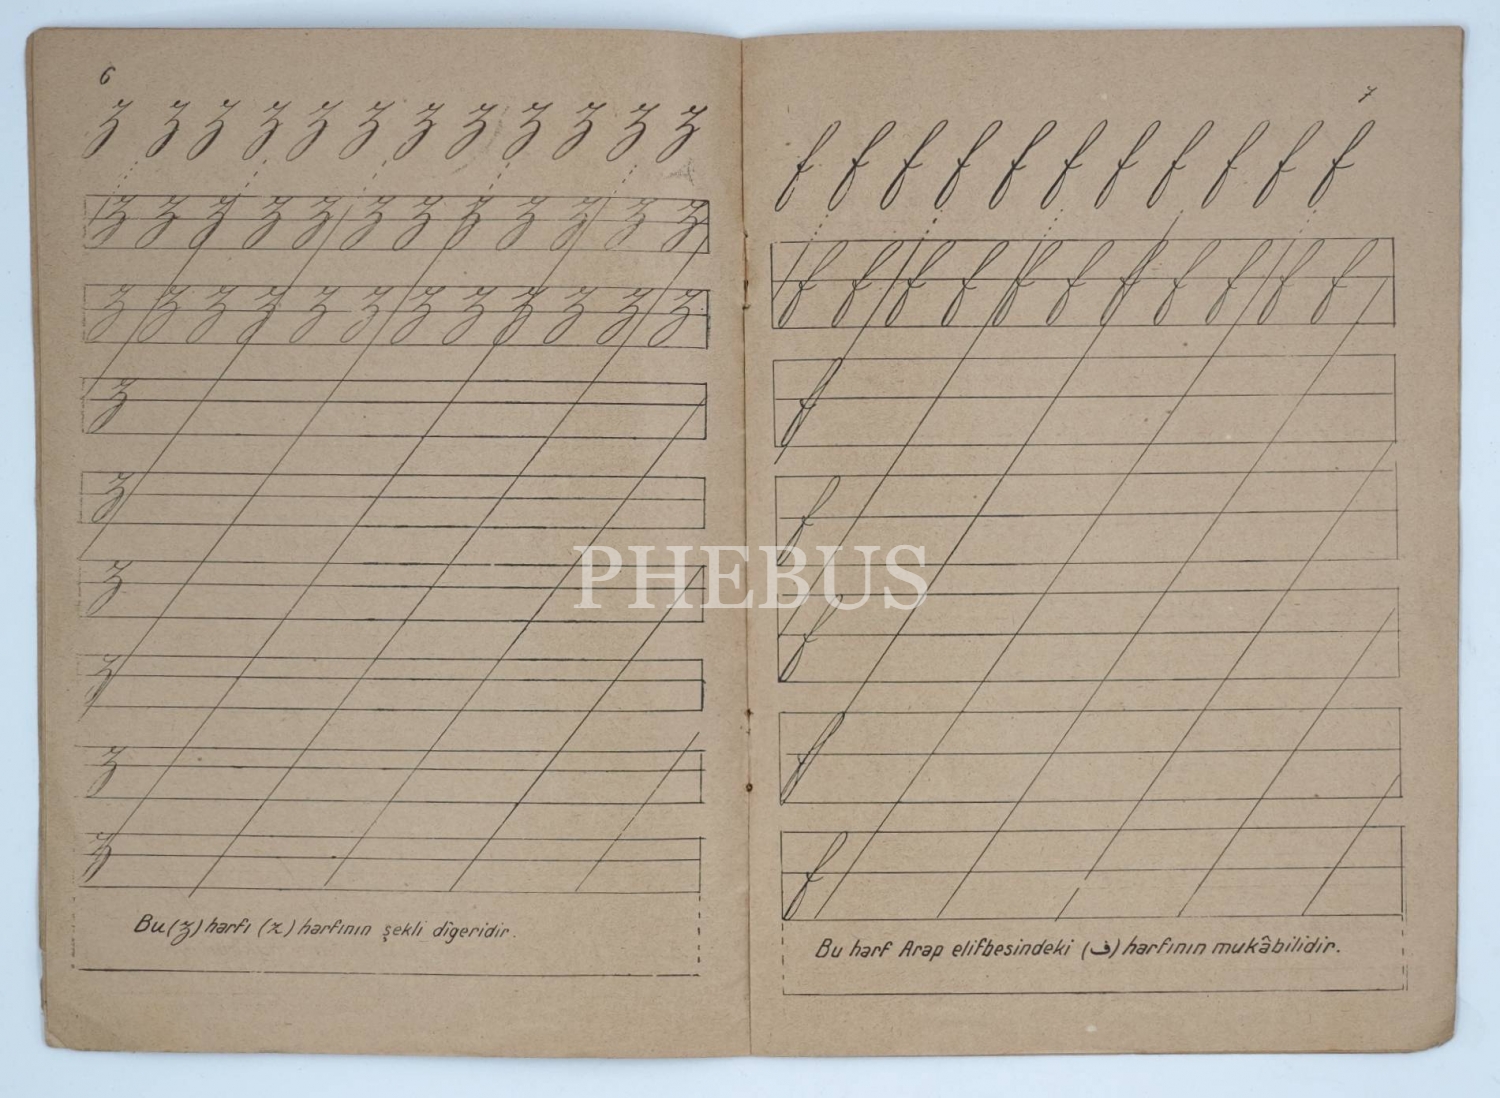 6
z z z z z z z z z z z z
z z z z z z z z z z z z
z z z z z z z z z z z z
z
z
z
z
z
z
Bu (z) harfi (z) harfinin şekli diğeridir.
7
f f f f f f f f f f f
f f f f f f f f f f f
f
f
f
f
f
Bu harf Arap elifbesindeki (ف) harfının mukâbilidir.
PHEBUS